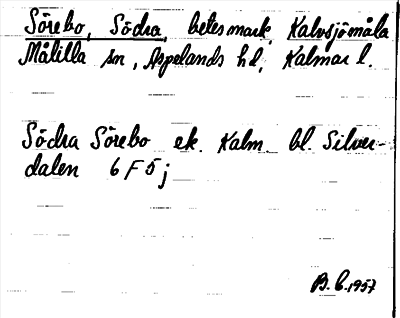 Sörebo, Södra, betesmark, Kalvsjömåla
Målilla sn, Aspelands hd, Kalmar l.
Södra Sörebo ek. Kalm. bl. Silver-
dalen 6 F 5 j
B. C. 1957